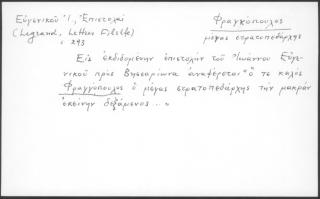 Εὐγενικοῦ Ἰ., Ἐπιστολαί
Φραγκόπουλος
(Legrand, Lettres Filelfe)
μέγας στρατοπεδάρχης
σ. 293
Εἰς ἐκδιδομένην ἐπιστολὴν τοῦ Ἰωάννου Εὐγε-
νικοῦ πρὸς Βησσαρίωνα ἀναφέρεται "ὅ τε καλὸς
Φραγγόπουλος ὁ μέγας στρατοπεδάρχης τὴν μακρὰν
ἐκείνην δεξάμενος ..."